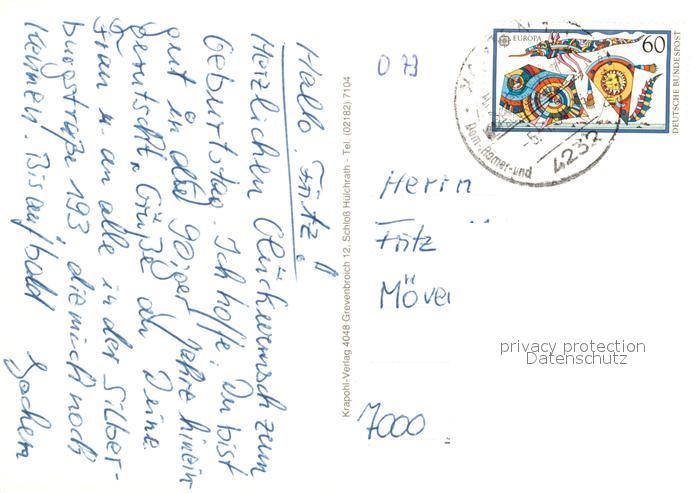 Hallo Fritz!
Herzlichen Glückwunsch zum
Geburtstag. Ich hoffe Du bist
gut in die 90iger Jahre hinein
gerutscht. Grüße an Deine
Frau u. an alle in der Silber-
burgstraße 193 die mich noch
kennen. Bis auf bald
Jochem
Krapohl-Verlag 4048 Grevenbroich 12, Schloß Hülchrath - Tel. (02182) 7104
073
EUROPA
60
DEUTSCHE BUNDESPOST
Dom-, Römer- und
4232
Herrn
Fritz
7000
privacy protection
Datenschutz